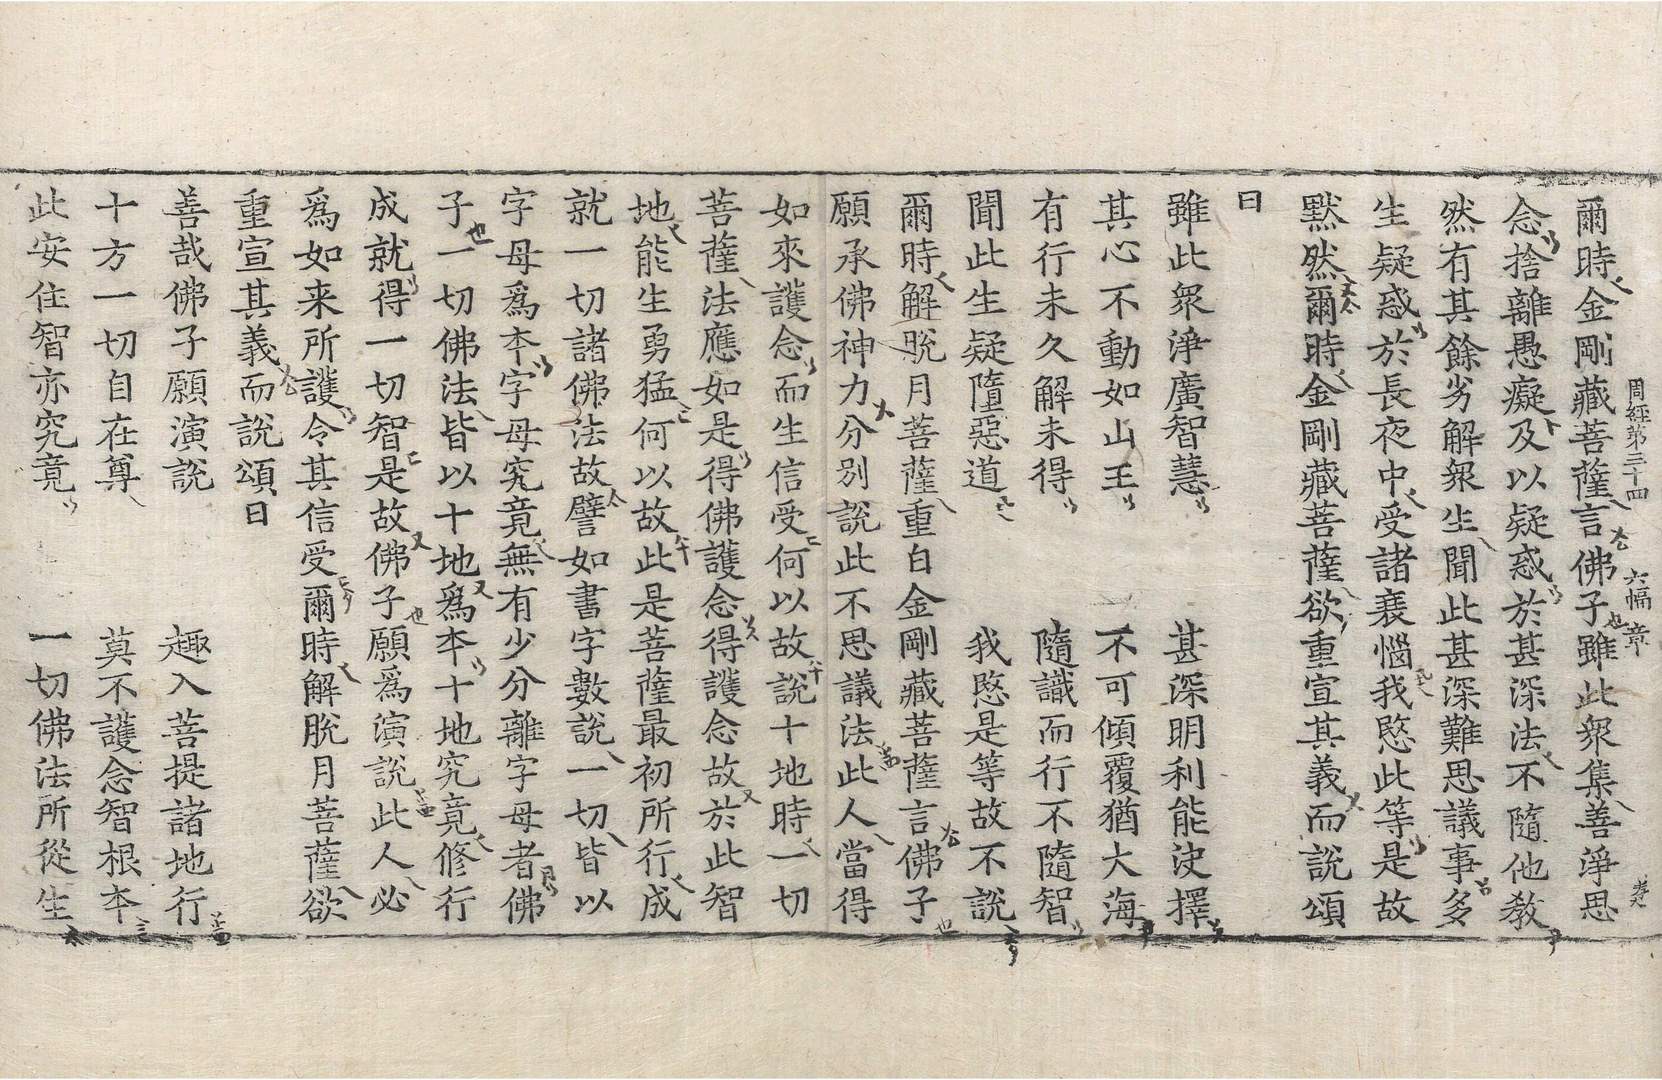 周經第三十四 六幅 章
爾時金剛藏菩薩言佛子雖此衆集善淨思
念捨離愚癡及以疑惑於甚深法不隨他教
然有其餘劣解衆生聞此甚深難思議事多
生疑惑於長夜中受諸衰惱我愍此等是故
黙然爾時金剛藏菩薩欲重宣其義而說頌
曰
雖此衆淨廣智慧 甚深明利能決擇
其心不動如山王 不可傾覆猶大海
有行未久解未得 隨識而行不隨智
聞此生疑墮惡道 我愍是等故不說
爾時解脫月菩薩重白金剛藏菩薩言佛子
願承佛神力分別說此不思議法此人當得
如來護念而生信受何以故說十地時一切
菩薩法應如是得佛護念得護念故於此智
地能生勇猛何以故此是菩薩最初所行成
就一切諸佛法故譬如書字數說一切皆以
字母爲本字母究竟無有少分離字母者佛
子一切佛法皆以十地爲本十地究竟修行
成就得一切智是故佛子願爲演說此人必
爲如來所護令其信受爾時解脫月菩薩欲
重宣其義而說頌曰
善哉佛子願演說 趣入菩提諸地行
十方一切自在尊 莫不護念智根本
此安住智亦究竟 一切佛法所從生